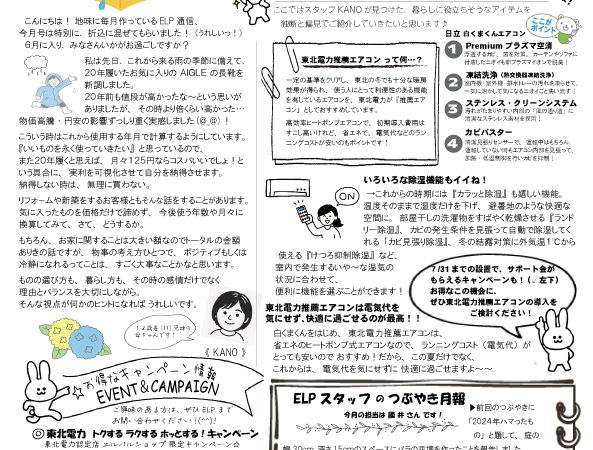 こんにちは！ 地味に毎月作っているELP通信、
今月号は特別に、折込に混ぜてもらいました！（うれしいっ！）
6月に入り、みなさんいかがお過ごしですか？
私は先日、これから来る雨の季節に備えて、
20年履いたお気に入りのAIGLEの長靴を
新調しました。
20年前も値段が高かったな～という思いが
ありましたが、その時より倍くらい高かった…
物価高騰・円安の影響ずっしり重く実感しました（@_@）！
こういう時はこれから使用する年月で計算するようにしています。
『いいものを永く使っていきたい』と思っているので、
また20年履くと思えば、月々125円ならコスパいいでしょ！と
いう具合に、実利を可視化させて自分を納得させます。
納得しない時は、無理に買わない。
リフォームや新築をするお客様ともそんな話をすることがあります。
気に入ったものを価格だけで諦めず、今後使う年数や月々に
換算してみて、さて、どうするか。
もちろん、お家に関することは大きい額なのでトータルの金額
ありきの話ですが、物事の考え方ひとつで、ポジティブもしくは
冷静になれるってことは、すごく大事なことかなと思います。
ものの選び方も、暮らし方も、その時の感情だけでなく
理由とバランスを大切にしながら。
そんな視点が何かのヒントになればうれしいです。
《 KANO 》
☆お得なキャンペーン情報
EVENT＆CAMPAIGN
ご興味のある方は、ぜひELPまで
お問い合わせください！(^^)!
◎東北電力 トクする ラクする ホッとする！キャンペーン
東北電力認定店 エルパルショップ 限定キャンペーン☆
ここではスタッフKANOが見つけた、暮らしに役立ちそうなアイテムを
独断と偏見でご紹介していきたいと思います♪
ここが
ポイント
東北電力推薦エアコン って何…？
一定の基準をクリアし、東北の冬でも十分な暖房
効果が得られ、使う人にとって利便性のある機能
を有しているエアコンを、東北電力が「推薦エア
コン」としておすすめしています。
高効率ヒートポンプエアコンで、初期導入費用は
すこし高いけれど、省エネで、電気代などのラン
ニングコストが安いのもポイントです！
日立 白くまくんエアコン
1 Premium プラズマ空清
2 凍結洗浄（熱交換器凍結洗浄）
3 ステンレス・クリーンシステム
4 カビバスター
いろいろな除湿機能もイイネ！
ON
→これからの時期には『カラッと除湿』も嬉しい機能。
温度そのままで湿度だけを下げ、避暑地のような快適な
空間に。部屋干しの洗濯物をすばやく乾燥させる『ランド
リー除湿』、カビの発生条件を見張って自動で除湿してく
れる「カビ見張り除湿』、冬の結露対策に外気温1℃から
使える『けつろ抑制除湿』など、
室内で発生するいや～な湿気の
状況に合わせて、
便利に機能を選ぶことができます！
7/31までの設置で、サポート会が
もらえるキャンペーンも！（↙左下）
お得なこの機会に、
ぜひ東北電力推薦エアコンの導入を
ご検討ください！
東北電力推薦エアコンは電気代を
気にせず、快適に過ごせるのが最高！！
白くまくんをはじめ、東北電力推薦エアコンは、
省エネのヒートポンプ式エアコンなので、ランニングコスト（電気代）が
とっても安いので おすすめ！だから、この夏だけでなく、
これからは、電気代を気にせずに 快適に過ごせますよ～～
ELP スタッフ の つぶやき月報
今月の担当は 國井 さん です！
▶前回のつぶやきに
「2024年ハマったも
の」と題して、庭の